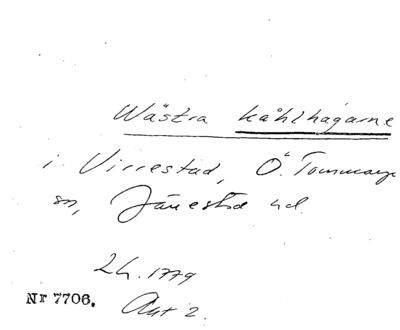 Wästra kåhlhagarne
i Virrestad, Ö. Tommarps
sn, Järrestad hd.
Lh. 1779
Nr 7706. Akt 2.